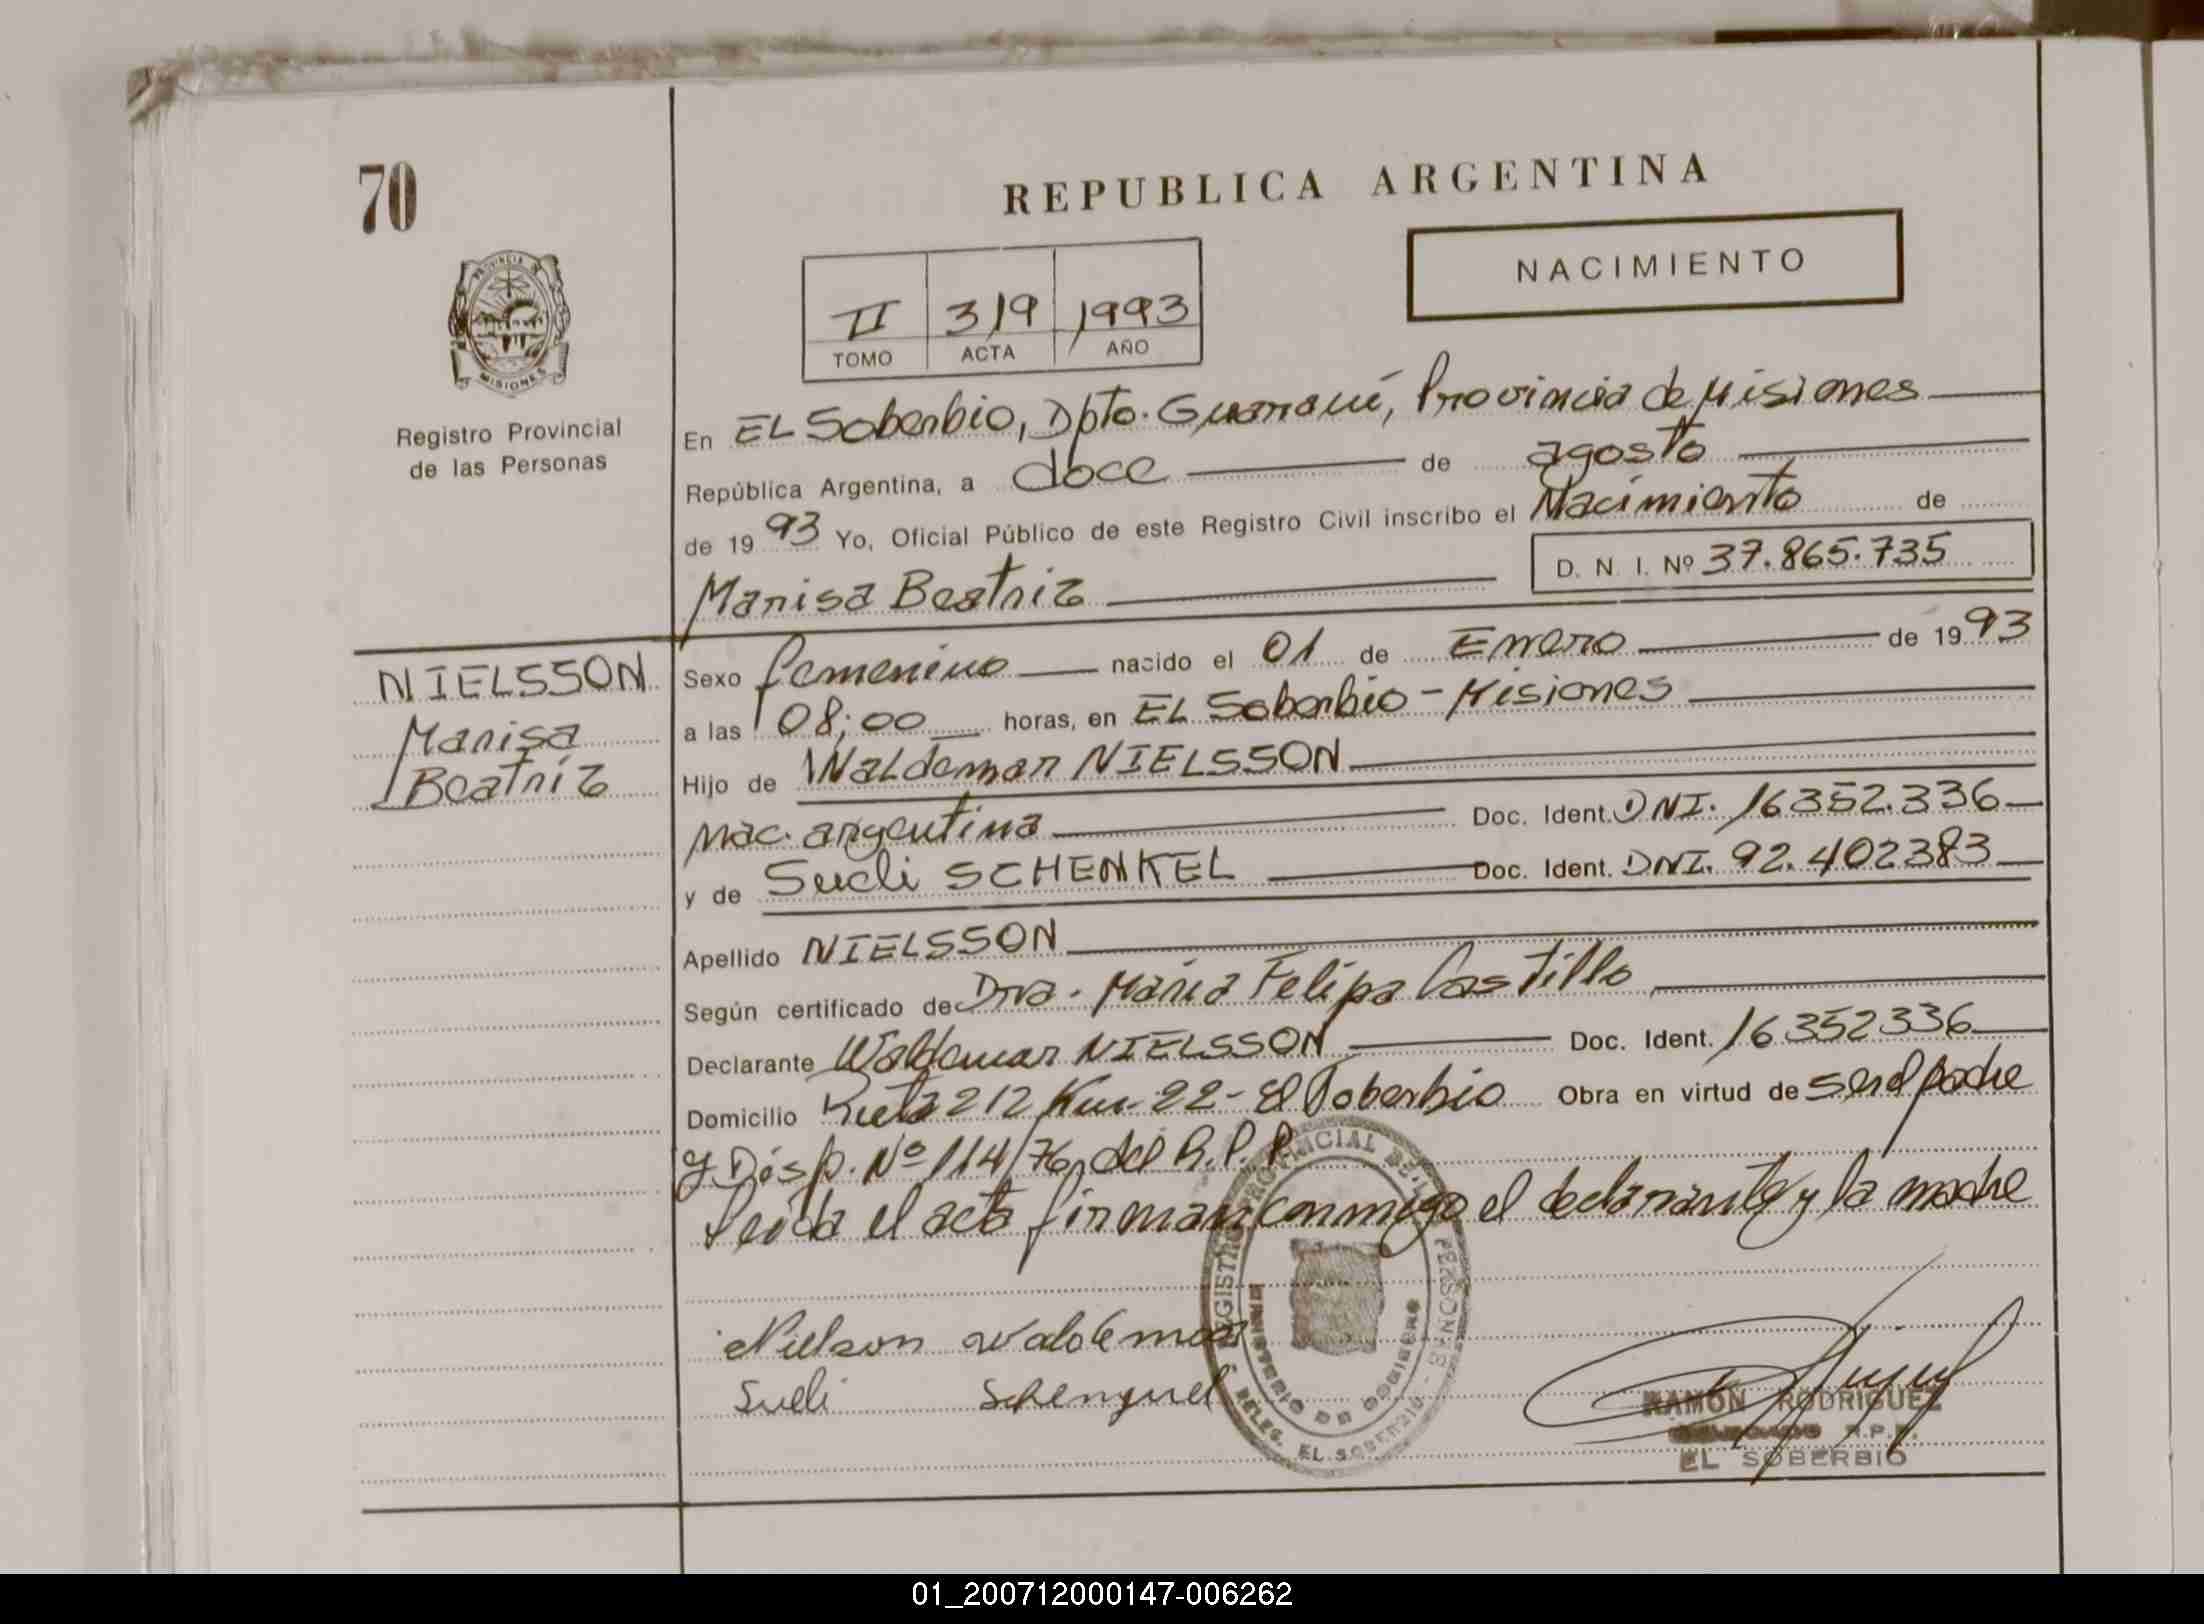 70
REPUBLICA ARGENTINA
NACIMIENTO
PROVINCIA DE
MISIONES
II 319 1993
TOMO ACTA AÑO
Registro Provincial
de las Personas
En EL Soberbio, Dpto. Guaraní, Provincia de Misiones
República Argentina, a doce de agosto
de 1993 Yo, Oficial Público de este Registro Civil inscribo el Nacimiento de
D. N. I. Nº 37.865.735
Marisa Beatriz
NIELSSON
Marisa
Beatriz
Sexo femenino nacido el 01 de Enero de 1993
a las 08;00 horas, en EL Soberbio - Misiones
Hijo de Waldemar NIELSSON
nac. argentina Doc. Ident. DNI. 16352.336
y de Sueli SCHENKEL Doc. Ident. DNI. 92.402383
Apellido NIELSSON
Según certificado de Dra. María Felipa Castillo
Declarante Waldemar NIELSSON Doc. Ident. 16352336
Domicilio Ruta 212 Km. 22 - El Soberbio Obra en virtud de ser el padre
y Disp. Nº 114/76, del R.P.P.
Leída el acta firman conmigo el declarante y la madre
Nielson Waldemar
Sueli Schenguel
REGISTRO PROVINCIAL DE L PERSONAS
MINISTERIO DE GOBIERNO
DELEG. EL SOBERBIO
RAMON RODRIGUEZ
R.P.P.
EL SOBERBIO
01_200712000147-006262